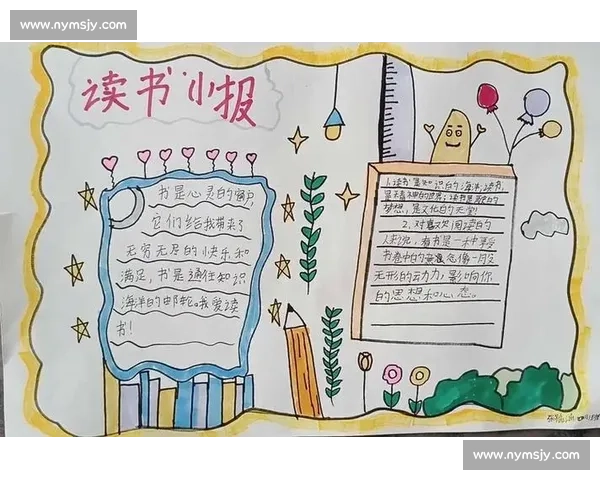 www.nymsjy.com
读书小报
书是心灵的窗户,
它们给我带来了
无穷无尽的快乐和
满足,书是通往知识
海洋的邮轮。我爱读
书!
1、读书是知识的海洋;读书,
是精神的世界;读书是
梦想,是文化的天堂!
2、对喜欢阅读的
人来说,看书是一种享
书卷中的
无形的动力,影响你
的思想和心态。
www.nymsjy.com